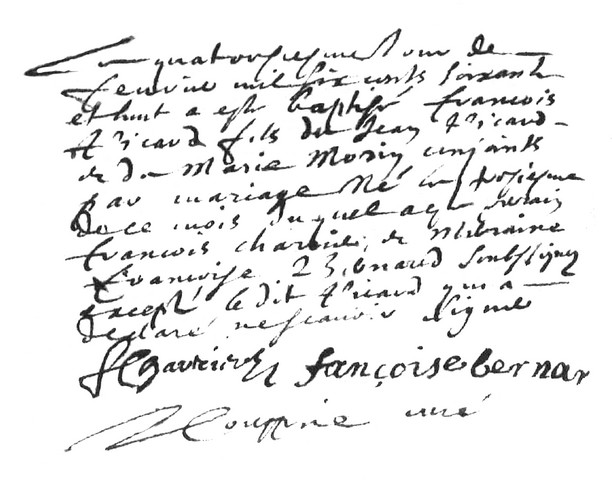 Le quatorsiesme Jour de
feuvrie mil six cents soixante
et huit a est baptisé francois
ficard fils de Jean ficard
& de Marie Morin conjoints
par mariage Né le troisiesme
de ce mois duquel a esté parain
francois chartier & Maraine
francoise Benard soubsignez
excepté ledit ficard qui a
declaré ne scavoir signé
f Chartier françoise bernar
curé